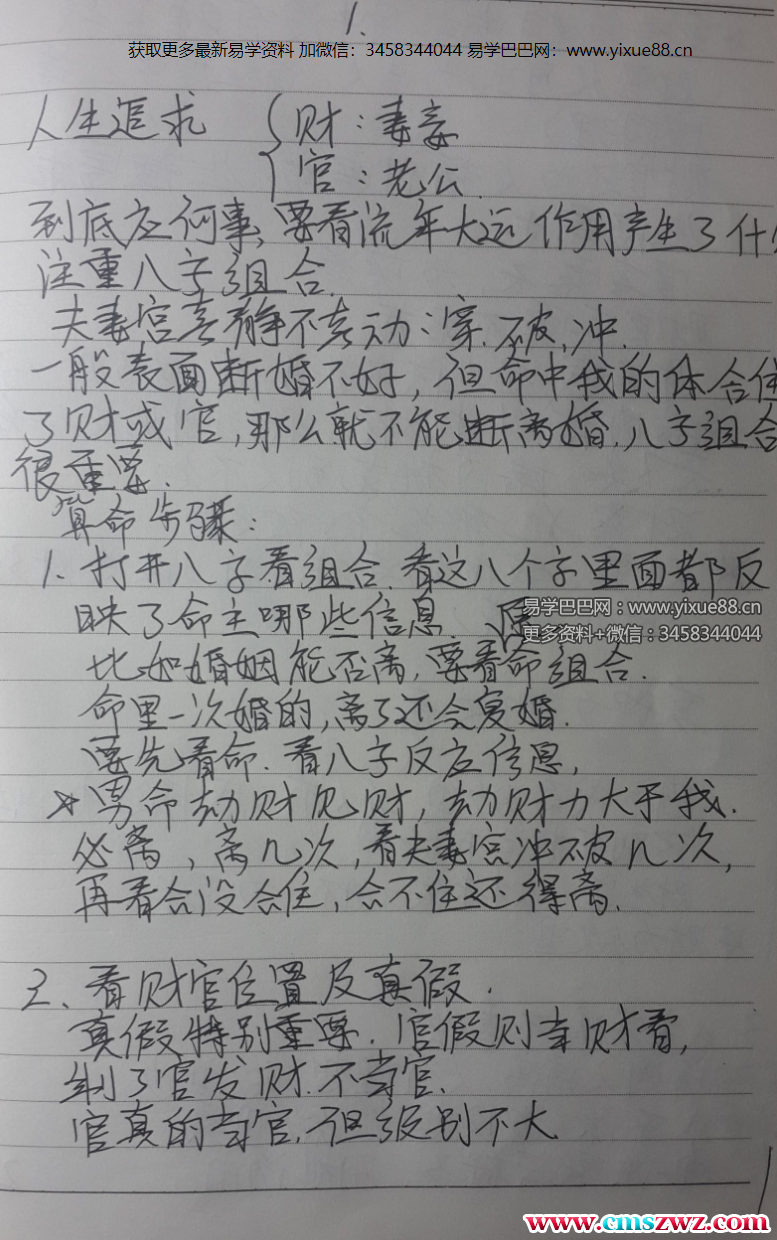 1.
获取更多最新易学资料 加微信：3458344044 易学巴巴网：www.yixue88.cn
人生追求 { 财：妻妾
官：老公
到底应何事，要看流年大运作用产生了什
注重八字组合.
夫妻宫喜静不喜动：穿.破.冲.
一般表面断婚不好，但命中我的体合住
了财或官，那么就不能断离婚.八字组合
很重要.
算命步骤：
1. 打开八字看组合.看这八个字里面都反
映了命主哪些信息. 原
易学巴巴网：www.yixue88.cn
更多资料+微信：3458344044
比如婚姻能否离，要看命组合.
命里一次婚的，离了还会复婚.
要先看命.看八字反应信息，
☆男命劫财见财，劫财力大于我.
必离，离几次，看夫妻宫冲破几次，
再看合没合住，合不住还得离.
2、看财官位置及真假.
真假特别重要.官假则幸财看，
制了官发财.不当官.
官真的当官.但级别不大
www.cmszwz.com